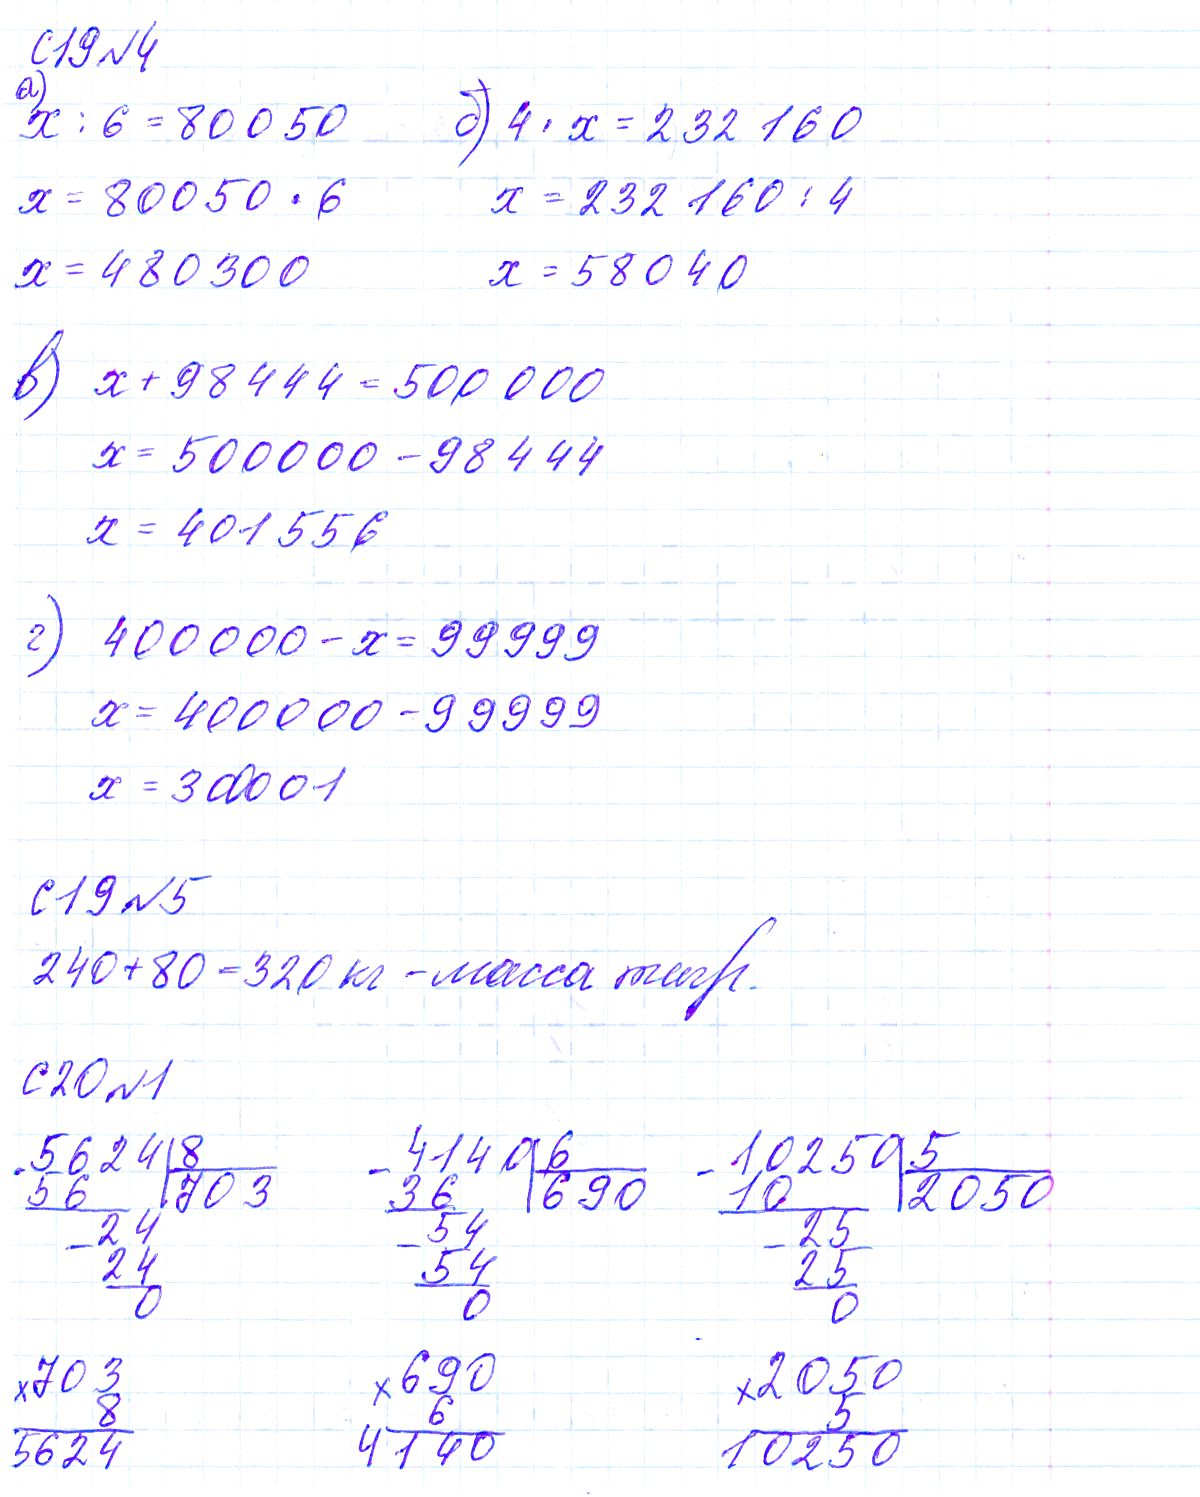 С19 №4
а)
x : 6 = 80050
x = 80050 · 6
x = 480300
б) 4 · x = 232 160
x = 232 160 : 4
x = 58040
в) x + 98444 = 500 000
x = 500000 - 98444
x = 401556
г) 400000 - x = 99999
x = 400000 - 99999
x = 300001
С19 №5
240 + 80 = 320 кг - масса тигр.
С20 №1
- 5624 | 8
56 | 703
- 24
24
0
- 4140 | 6
36 | 690
- 54
54
0
- 10250 | 5
10 | 2050
- 25
25
0
x 703
8
5624
x 690
6
4140
x 2050
5
10250